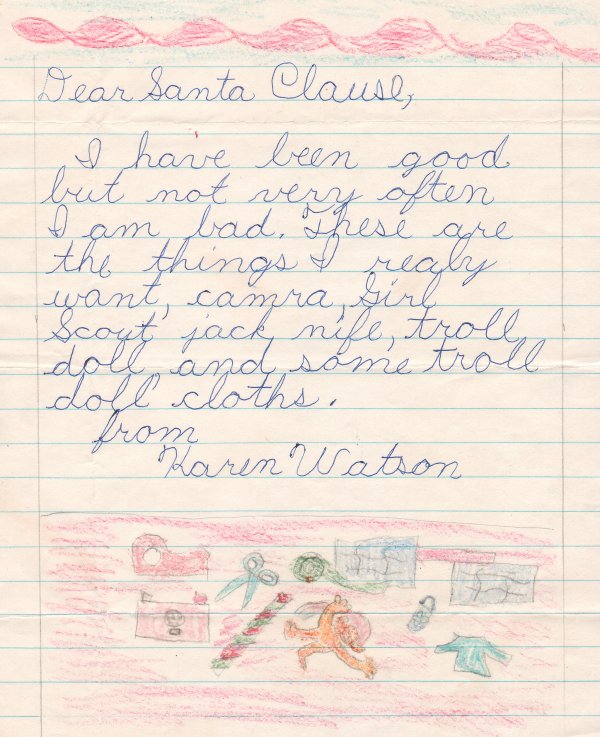 Dear Santa Clause,
I have been good
but not very often
I am bad. These are
the things I realy
want, camra, Girl
Scout jack nife, troll
doll, and some troll
doll cloths.
from
Karen Watson